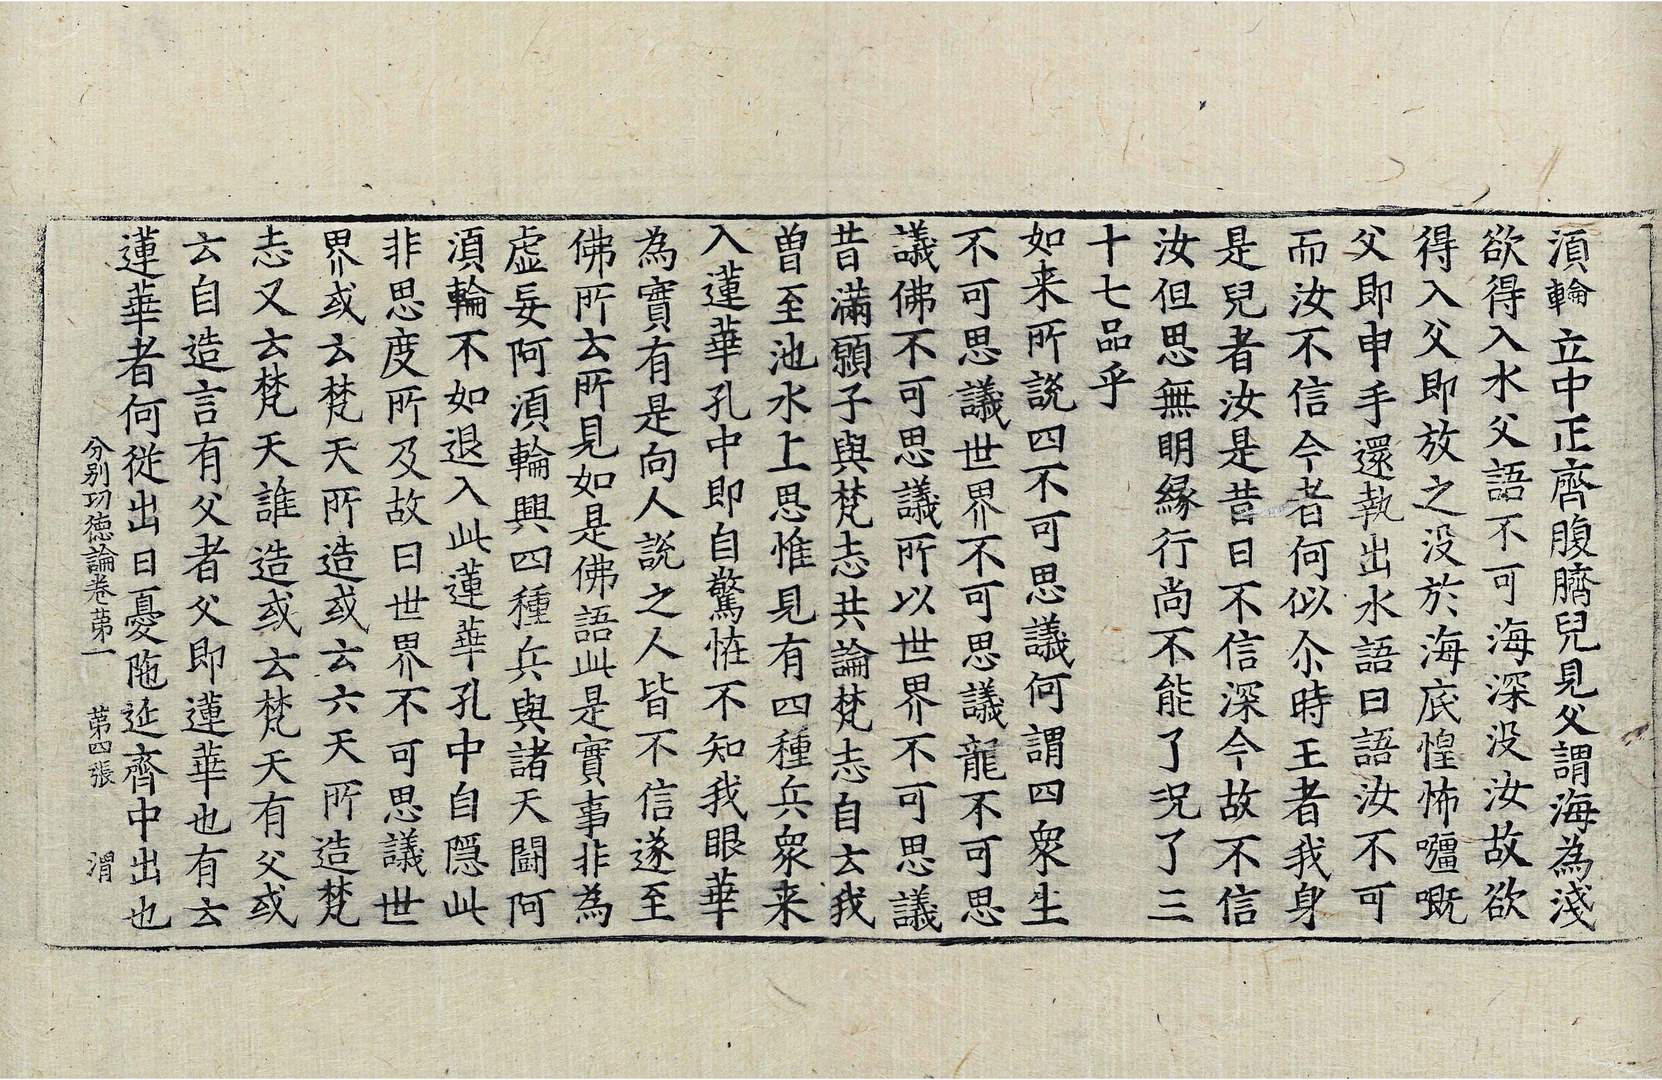 湏輪立中正齊腹臍兒見父謂海為淺
欲得入水父語不可海深没汝故欲
得入父即放之没於海底惶怖嚁嘅
父即申手還執出水語曰語汝不可
而汝不信今者何似尒時王者我身
是兒者汝是昔日不信深今故不信
汝但思無明緣行尚不能了况了三
十七品乎
如来所說四不可思議何謂四衆生
不可思議世界不可思議龍不可思
議佛不可思議所以世界不可思議
昔滿願子與梵志共論梵志自云我
曽至池水上思惟見有四種兵衆来
入蓮華孔中即自驚恠不知我眼華
為實有是向人說之人皆不信遂至
佛所云所見如是佛語此是實事非為
虚妄阿湏輪興四種兵與諸天闘阿
湏輪不如退入此蓮華孔中自隱此
非思度所及故曰世界不可思議世
界或云梵天所造或云六天所造梵
志又云梵天誰造或云梵天有父或
云自造言有父者父即蓮華也有云
蓮華者何從出曰憂陁延齊中出也
分别功德論卷苐一 苐四張 渭